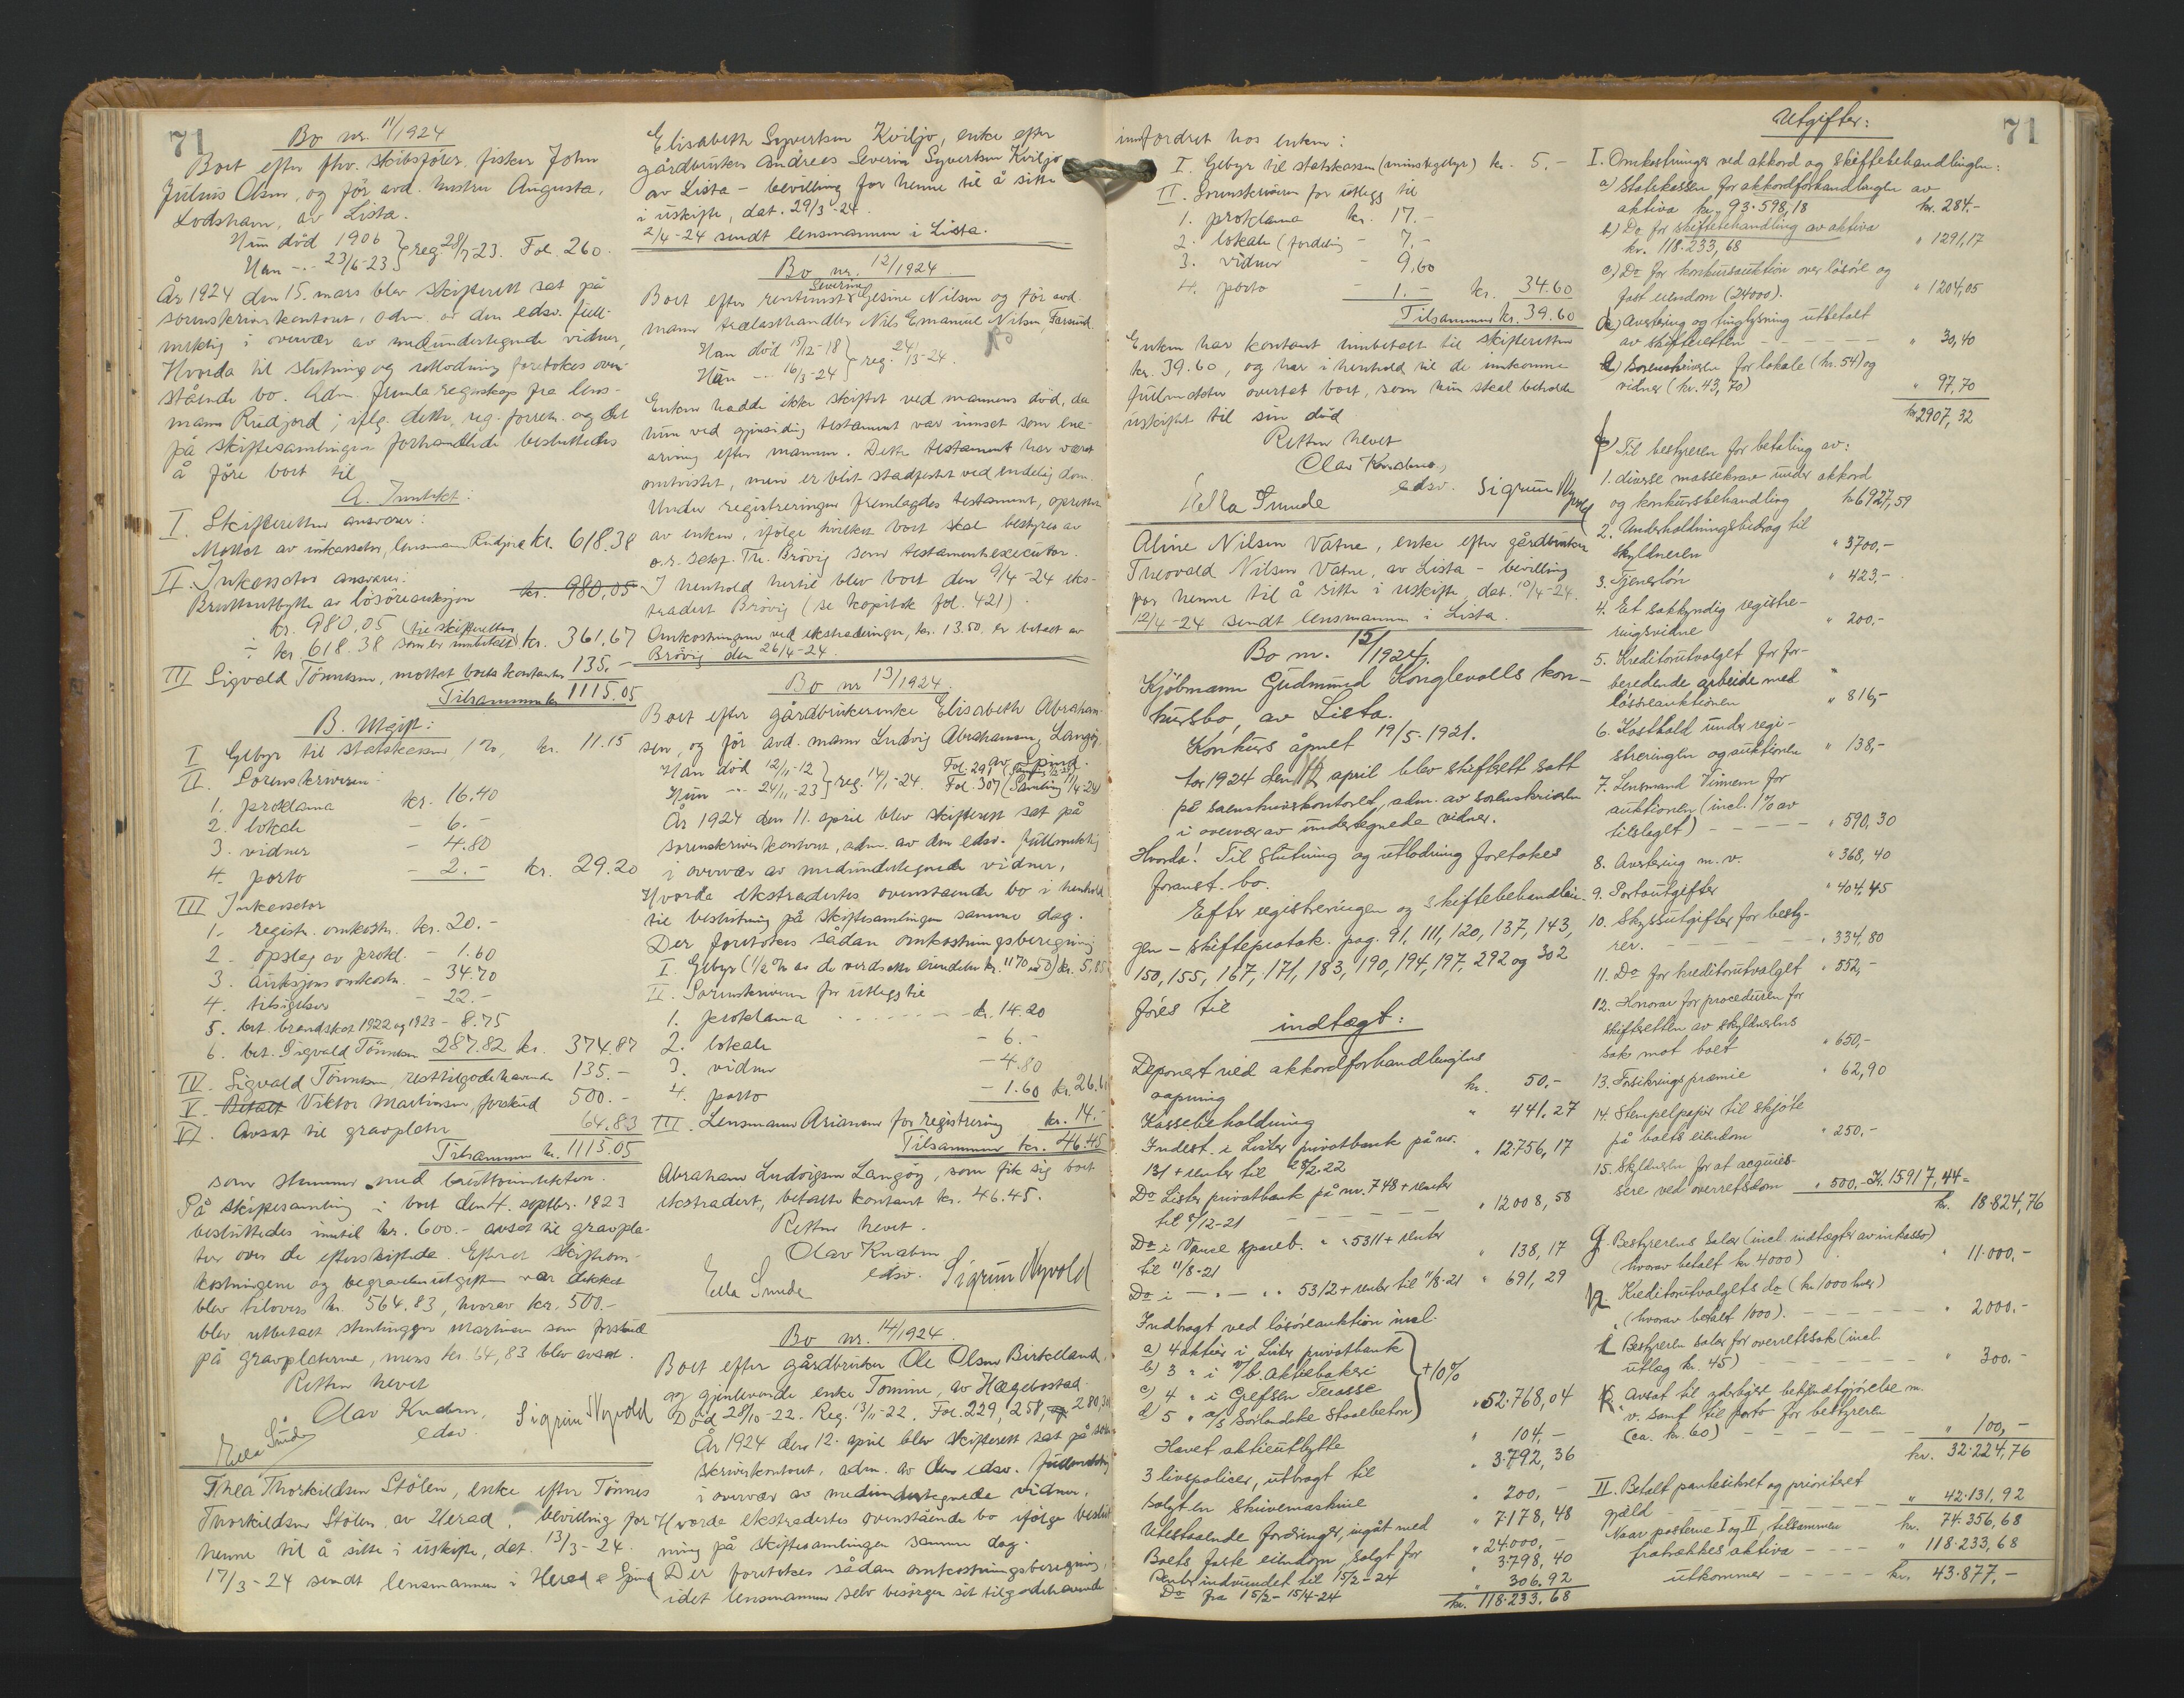 71
Bo nr. 11/1924
Boet efter fhv. skibsfører, fisker John
Julius Olsen, og før avd. hustru Augusta,
Lodshavn, av Lista.
Hun død 1906 } reg. 28/7-23. Fol. 260.
Han -"- 23/6-23
År 1924 den 15. mars blev skifterett sat på
sorenskriverkontoret, adm. av den edsv. full-
mektig i overvær av medundertegnede vidner,
Hvorda til slutning og utlodning foretokes oven-
stående bo. Adm. fremla regnskap fra lens-
mann Rudjord; iflg. dette, reg. forretn. og det
på skiftesamlingen forhandlede besluttedes
å føre boet til
A. Inntekt:
I. Skifteretten ansvarer:
Mottat av inkassator, lensmann Rudjord kr. 618.38
II. Inkassator ansvarer:
Bruttoutbytte av løsøreauksjon kr. 980,05
kr. 980,05 (til skifteretten
÷ kr. 618.38 som er innbetalt) kr. 361,67
III Sigvald Tønnesen, mottat boets kontanter 135.-
Tilsammen kr. 1115.05
B. Utgift:
I Gebyr til statskassen 1%, kr. 11.15
II. Sorenskriveren:
1. proklama kr. 16.40
2. lokale - 6.-
3. vidner - 4.80
4. porto - 2.- kr. 29.20
III Inkassator
1. registr. omkostn. kr. 20.-
2. opslag av prokl. - 1.60
3. auksjonsomkostn. - 34.70
4. tilsigelser - 22.-
5. bet. brandskat 1922 og 1923 - 8.75
6. bet. Sigvald Tønnesen 287.82 kr. 374.87
IV. Sigvald Tønnesen, resttilgodehavende 135.-
V. Betalt Viktor Martinsen, forskud 500.-
VI. Avsat til gravplater 64.83
Tilsammen kr. 1115.05
som stemmer med bruttoinntekten.
På skiftesamling i boet den 4. septbr. 1923
besluttedes inntil kr. 600.- avsat til gravpla-
ter over de efterskiftede. Efterat skifteom-
kostningene og begravelsesutgiften var dekket
blev tilovers kr. 564.83, hvorav kr. 500.-
blev utbetalt stenhugger Martinsen som forskudd
på gravplaterne, mens kr. 64,83 blev avsat.
Retten hevet
Olav Knaben,
edsv. Sigrun Nyvold
Ella Sunde
Thea Thorkildsen Stølen, enke efter Tønnes
Thorkildsen Stølen, av Herad, bevilling for
henne til å sitte i uskifte, dat. 13/3-24.
17/3-24 sendt lensmannen i Herad & Spind
Elisabeth Syvertsen Kviljo, enke efter
gårdbruker Andreas Severin Syvertsen Kviljo
av Lista - bevilling for henne til å sitte
i uskifte, dat. 29/3-24.
2/4-24 sendt lensmannen i Lista.
Bo nr. 12/1924
Boet efter rentenist Severine Gesine Nilsen og før avd.
mann trælasthandler Nils Emanuel Nilsen, Farsund.
Han død 15/2-18 } reg. 24/3-24.
Hun -"- 16/3-24
Enken hadde ikke skiftet ved mannens død, da
hun ved gjensidig testament var innsat som ene-
arving efter mannen. Dette testament har været
omtvistet, men er blit stadfestet ved endelig dom.
Under registreringen fremlagdes testament, oprettet
av enken, ifølge hvilket boet skal bestyres av
o.r. sakf. Th. Brøvig som testamentexecutor.
I henhold hertil blev boet den 9/4-24 eks-
tradert Brøvig (se kopibok fol. 421).
Omkostningene ved ekstraderingen, kr. 13.50 er betalt av
Brøvig den 26/4-24.
Bo nr 13/1924
Boet efter gårdbrukerenke Elisabeth Abraham-
sen, og før avd. mann Ludvig Abrahamsen, Langøy,
av Spind.
Han død 12/11-12 } reg. 14/1-24. Fol. 291
Hun -"- 24/11-23 Fol. 307 (Samling 11/4-24)
År 1924 den 11. april blev skifterett sat på
sorenskriverkontoret, adm. av den edsv. fullmektig
i overvær av medundertegnede vidner,
Hvorda ekstradertes ovenstaaende bo i henhold
til beslutning på skiftesamlingen samme dag.
Der foretokes sådan omkostningsberegning
I. Gebyr (1/2% av de verdsatte eiendeler kr. 1170.50) kr. 5.85
II. Sorenskriveren for utlegg til
1. proklama kr. 14.20
2. lokale - 6.-
3. vidner - 4.80
4. porto - 1.60 kr. 26.60
III. Lensmann Arianson for registrering kr. 14.-
Tilsammen kr. 46.45
Abraham Ludvigsen Langøy, som fik sig boet
ekstradert, betalte kontant kr. 46.45.
Retten hevet.
Olav Knaben
edsv. Sigrun Nyvold
Ella Sunde
Bo nr. 14/1924
Boet efter gårdbruker Ole Olsen Birkeland,
og gjenlevende enke Tomine, av Hægebostad.
Død 28/10-22. Reg. 13/11-22. Fol. 229, 258, 280,301
År 1924 den 12. april blev skifterett sat på soren-
skriverkontoret, adm. av den edsv. fullmektig
i overvær av medundertegnede vidner.
Hvorda ekstradertes ovenstående bo ifølge beslut-
ning på skiftesamlingen samme dag.
Der foretokes sådan omkostningsberegning,
idet lensmannen selv besørger sit tilgodehavende
71
innfordret hos enken:
I. Gebyr til statskassen (minstegebyr) kr. 5.-
II. Sorenskriveren for utlegg til
1. proklama kr. 17.-
2. lokale (fordeling - 7,-
3. vidner - 9,60
4. porto - 1.- kr. 34.60
Tilsammen kr. 39.60
Enken har kontant innbetalt til skifteretten
kr. 39.60, og har i henhold til de innkomne
fullmakter overtat boet, som hun skal beholde
uskiftet til sin død
Retten hevet
Olav Knaben,
edsv. Sigrun Nyvold
Ella Sunde
Aline Nilsen Vatne, enke efter gårdbruker
Theovald Nilsen Vatne, av Lista - bevilling
for henne til å sitte i uskifte, dat. 10/4-24.
12/4-24 sendt lensmannen i Lista.
Bo nr. 15/1924.
Kjøbmann Gudmund Konglevolls kon-
kursbo, av Lista.
Konkurs åpnet 19/5-1921.
Aar 1924 den 12 april blev skifterett satt
på sorenskriverkontoret, adm. av sorenskriveren
i overvær av undertegnede vidner.
Hvorda! Til slutning og utlodning foretokes
foranst. bo.
Efter registreringen og skiftebehandlin-
gen - skifteprotok. pag. 91, 111, 120, 137, 143,
150, 155, 167, 171, 183, 190, 194, 197, 292 og 302
føres til
indtægt:
Deponert ved akkordforhandlingens
aapning kr. 50,-
Kassebeholdning " 441.27
Indest. i Lister privatbank på nr.
131 + renter til 28/2-22 " 12.756,17
Do Lister privatbank på nr. 748 + renter
til 8/12-21 " 12008,58
Do i Vanse spareb. " " 5311 + renter
til 11/8-21 " 138,17
Do i - " - " " 5312 + renter til 11/8-21 " 691,29
Indbragt ved løsøreauktion incl.
a) 4 aktier i Lister privatbank
b) 3 " i A/S. aktiebakeri
c) 4 " i Grefsen Terasse
d) 5 " a/s Sørlandske Staalbeton } +10% " 52.768,04
Hævet aktieutbytte " 104,-
3 livspolicer, utbragt til " 3.792,36
Solgt en skrivemaskine " 200,-
Utestaaende fordringer, ingåt med " 7.178,48
Boets faste eiendom, solgt for " 24.000,-
Renter indvundet til 15/2-24 " 3.798,40
Do fra 15/2-15/4-24 " 306.92
kr. 118.233,68
Utgifter:
I. Omkostninger ved akkord og skiftebehandlingen:
a) Statskassen for akkordforhandlingen av
aktiva kr. 93.598,18 kr. 284.-
b) Do for skiftebehandling av aktiva
kr. 118.233,68 " 1291,17
c) Do for konkursauktion over løsøre og
fast eiendom (24000). " 1204,05
d) Avertering og tinglysning utbetalt
av skifteretten " 30,40
e) Sorenskriveren for lokale (kr. 54) og
vidner (kr. 43,70) " 97,70
kr. 2907,32
f) Til bestyreren for betaling av:
1. diverse massekrav under akkord
og konkursbehandling kr. 6927,59
2. Underholdningsbidrag til
skyldneren " 3700,-
3. Tjenerløn " 423,-
4. Et sakkyndig registre-
ringsvidne " 200,-
5. Kreditorutvalget for for-
beredende arbeide med
løsøreauktionen " 816,-
6. Kosthold under regi-
streringen og auktionen " 138,-
7. Lensmand Vinnem for
auktionen (incl. 1% av
tilslaget) " 590,30
8. Avertering m.v. " 368,40
9. Portoutgifter " 404,45
10. Skyssutgifter for besty-
rer. " 334,80
11. Do for kreditorutvalget " 552,-
12. Honorar for proceduren for
skifteretten av skyldnerens
sak mot boet " 650,-
13. Forsikringspræmie " 62,90
14. Stempelpapir til skjøte
på boets eiendom " 250,-
15. Skyldneren for at acquies-
sere ved overretsdom " 500.- Kr. 15917,44-
kr. 18.824,76
g. Bestyrerens salær (incl. indtægter av inkasso)
(hvorav betalt kr. 4000) " 11.000.-
h. Kreditorutvalgets do (kr. 1000 hver)
(hvorav betalt 1000). " 2000.-
i Bestyreren salær for overretssak (incl.
utlæg kr. 45) " 300.-
k. Avsat til yderligere bekjendtgjørelse m.
v. samt til porto for bestyreren
(ca. kr. 60) " 100,-
kr. 32.224,76
II. Betalt pantesikret og prioritert
gjæld " 42.131,92
kr. 74.356,68
Naar posterne I og II, tilsammen
fratrækkes aktiva " 118.233,68
utkommer kr. 43.877,-